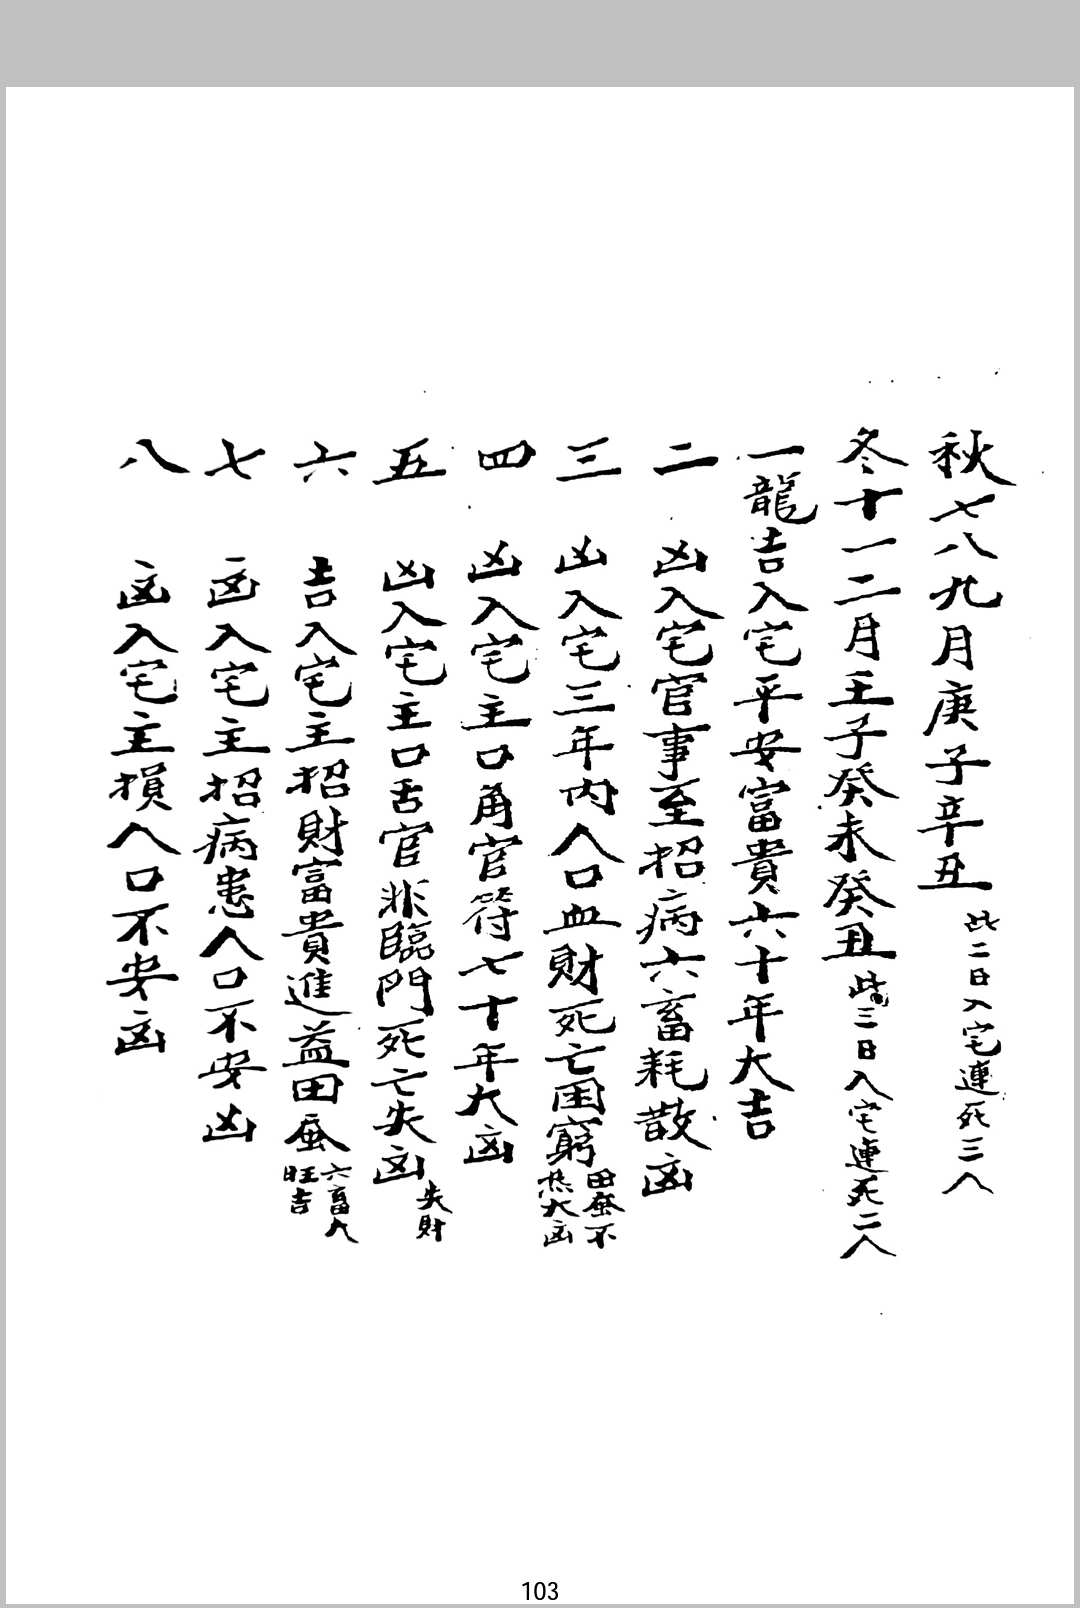 秋七八九月庚子辛丑此二日入宅連死三人
冬十一二月壬子癸未癸丑此三日入宅連死二人
一龍吉入宅平安富貴六十年大吉
二 凶入宅官事至招病六畜耗散凶
三 凶入宅三年內人口血財死亡困窮田蚕不熟大凶
四 凶入宅主口角官符七十年大凶
五 凶入宅主口舌官非臨門死亡失凶失財
六 吉入宅主招財富貴進益田蚕六畜大旺吉
七 凶入宅主招病患人口不安凶
八 凶入宅主損人口不安凶
103